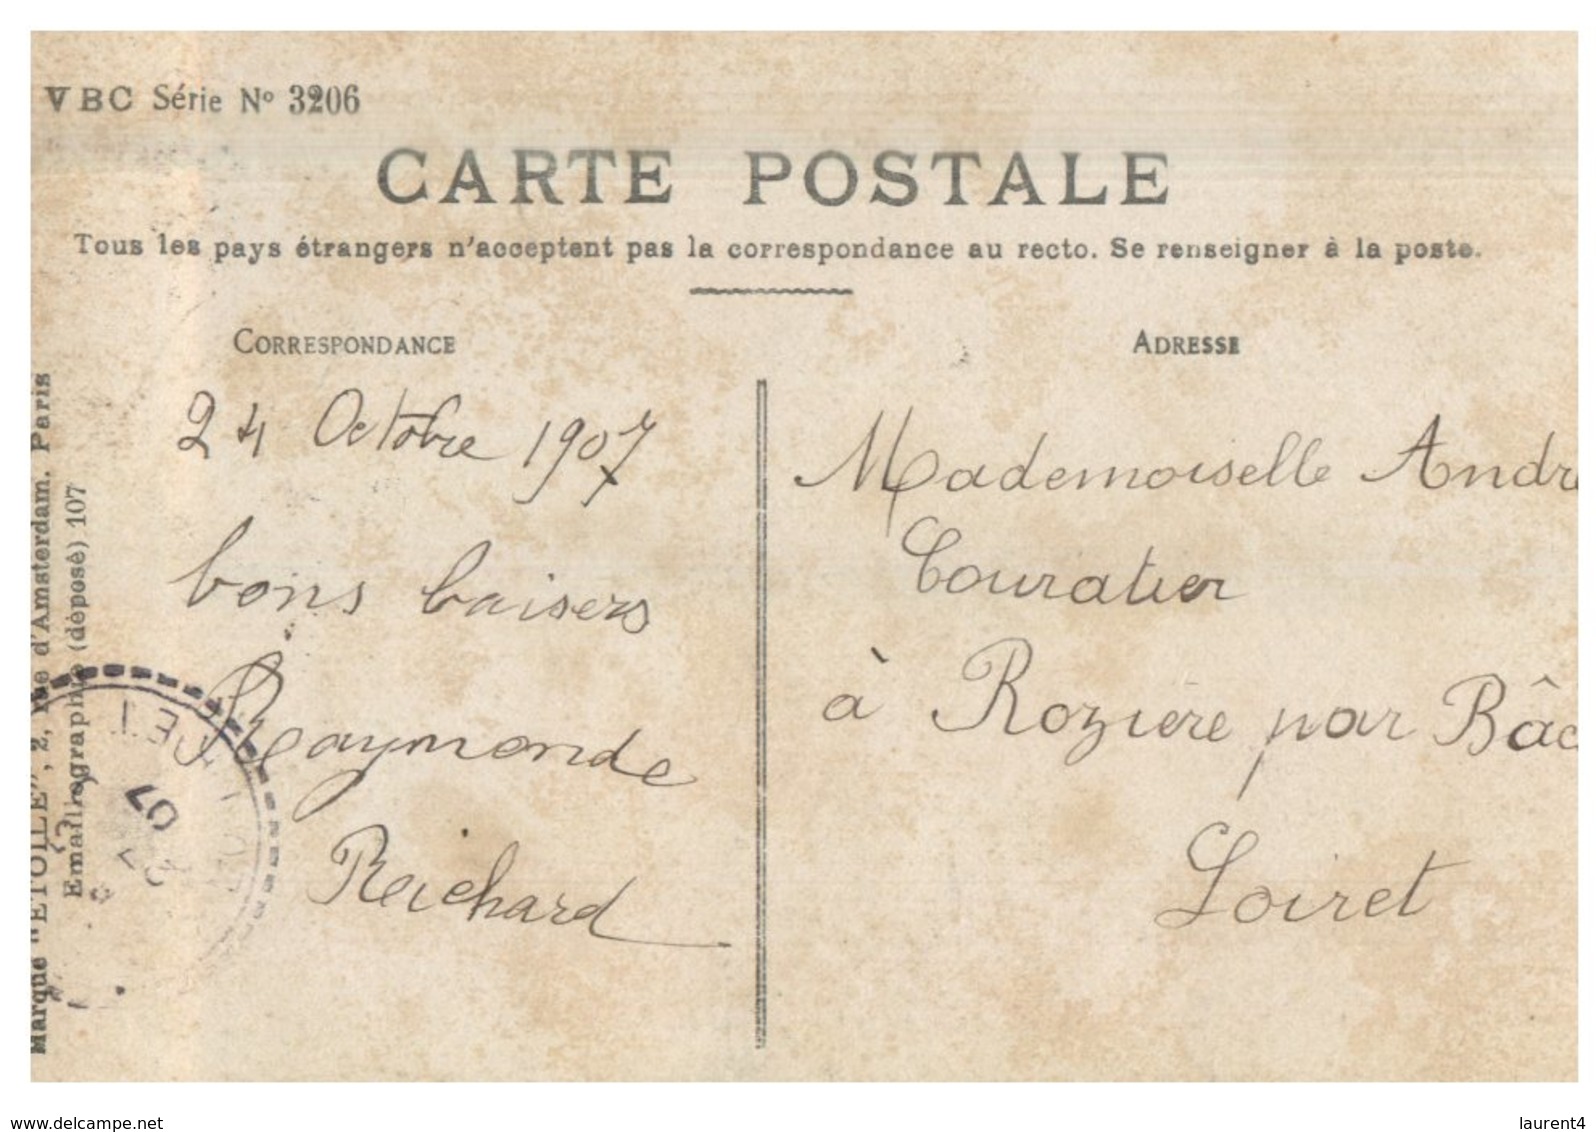 VBC Série Nº 3206
CARTE POSTALE
Tous les pays étrangers n'acceptent pas la correspondance au recto. Se renseigner à la poste.
CORRESPONDANCE
24 Octobre 1907
bons baisers
Raymonde
Reichard
ADRESSE
Mademoiselle Andr
Couratier
à Rozière par Bâc
Loiret
Marque "ETOILE", 2, rue d'Amsterdam. Paris
Emaillographie (déposé) 107
07
www.delcampe.net
laurent4